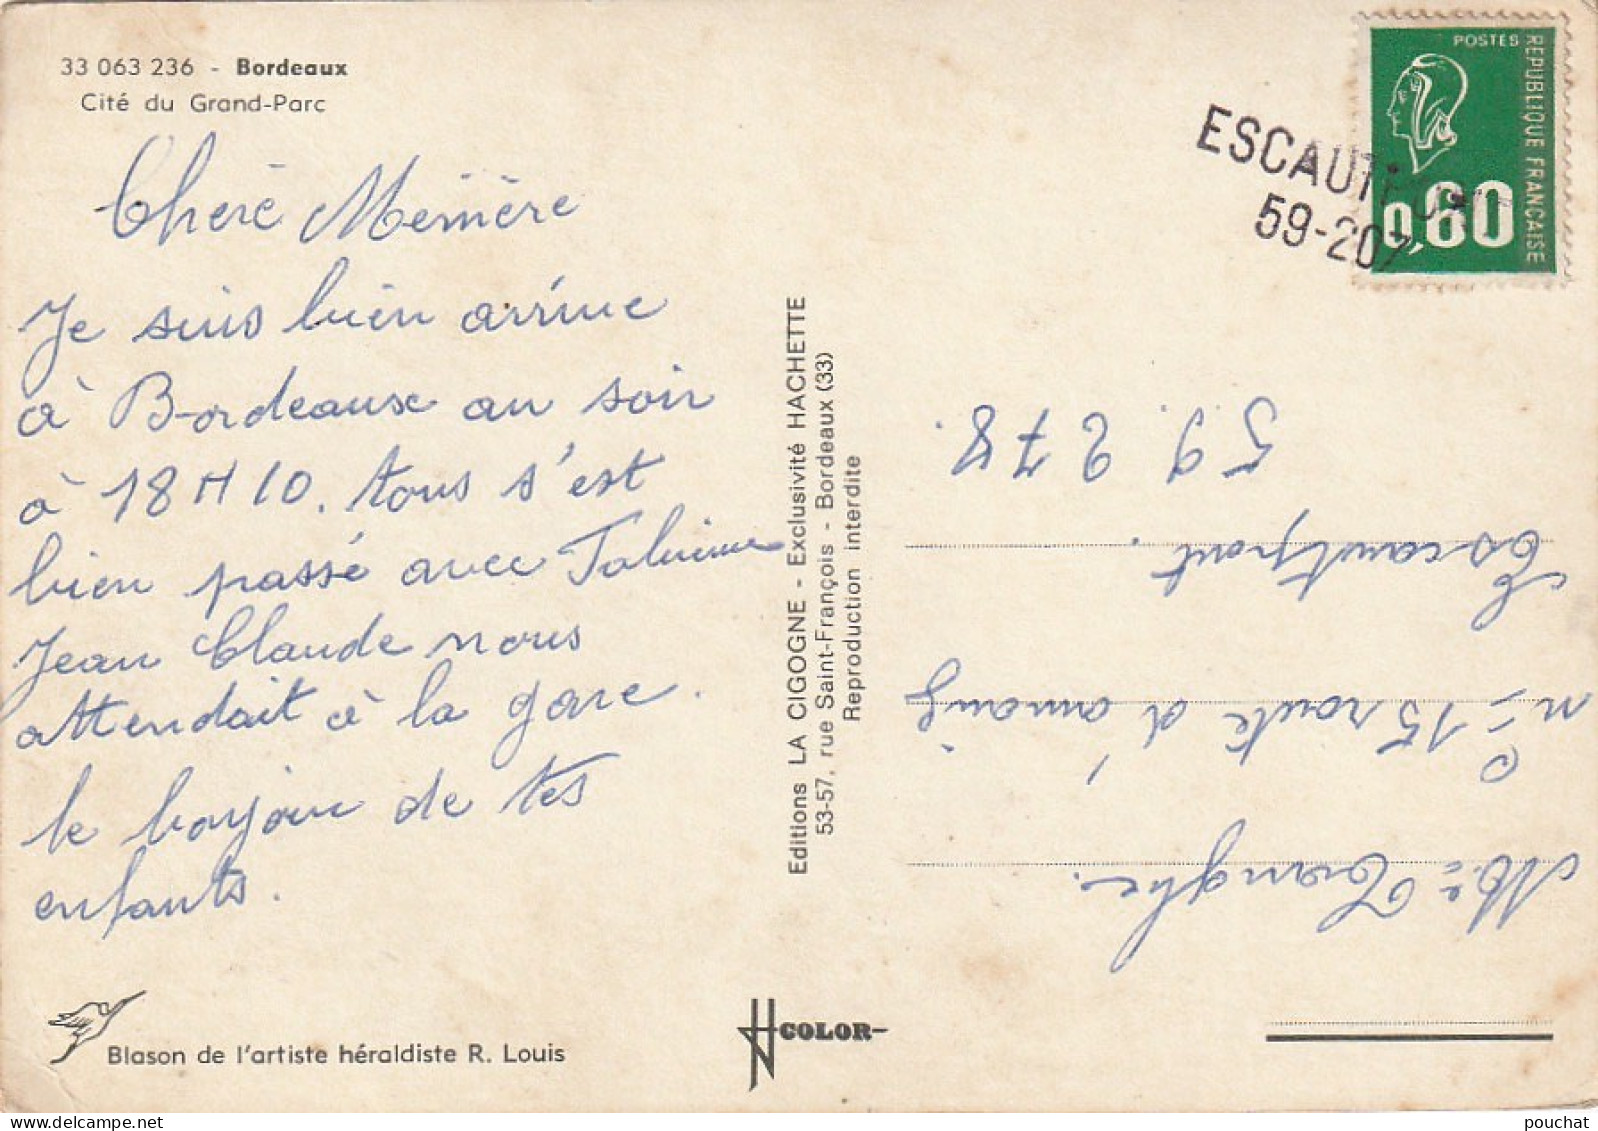 33 063 236 - Bordeaux
Cité du Grand-Parc
Cheré Mémère
Je suis bien arrivé
à Bordeaux au soir
à 18 H 10. tous s'est
bien passé avec
Jean Claude nous
attendait à la gare.
le bonjour de tes
enfants.
Blason de l'artiste héraldiste R. Louis
Editions LA CIGOGNE - Exclusivité HACHETTE
53-57, rue Saint-François - Bordeaux (33)
Reproduction interdite
COLOR
POSTES
REPUBLIQUE FRANÇAISE
0,60
ESCAUTPONT
59-207
n° 15 route d'
Escautpont.
59.278.
pouchat